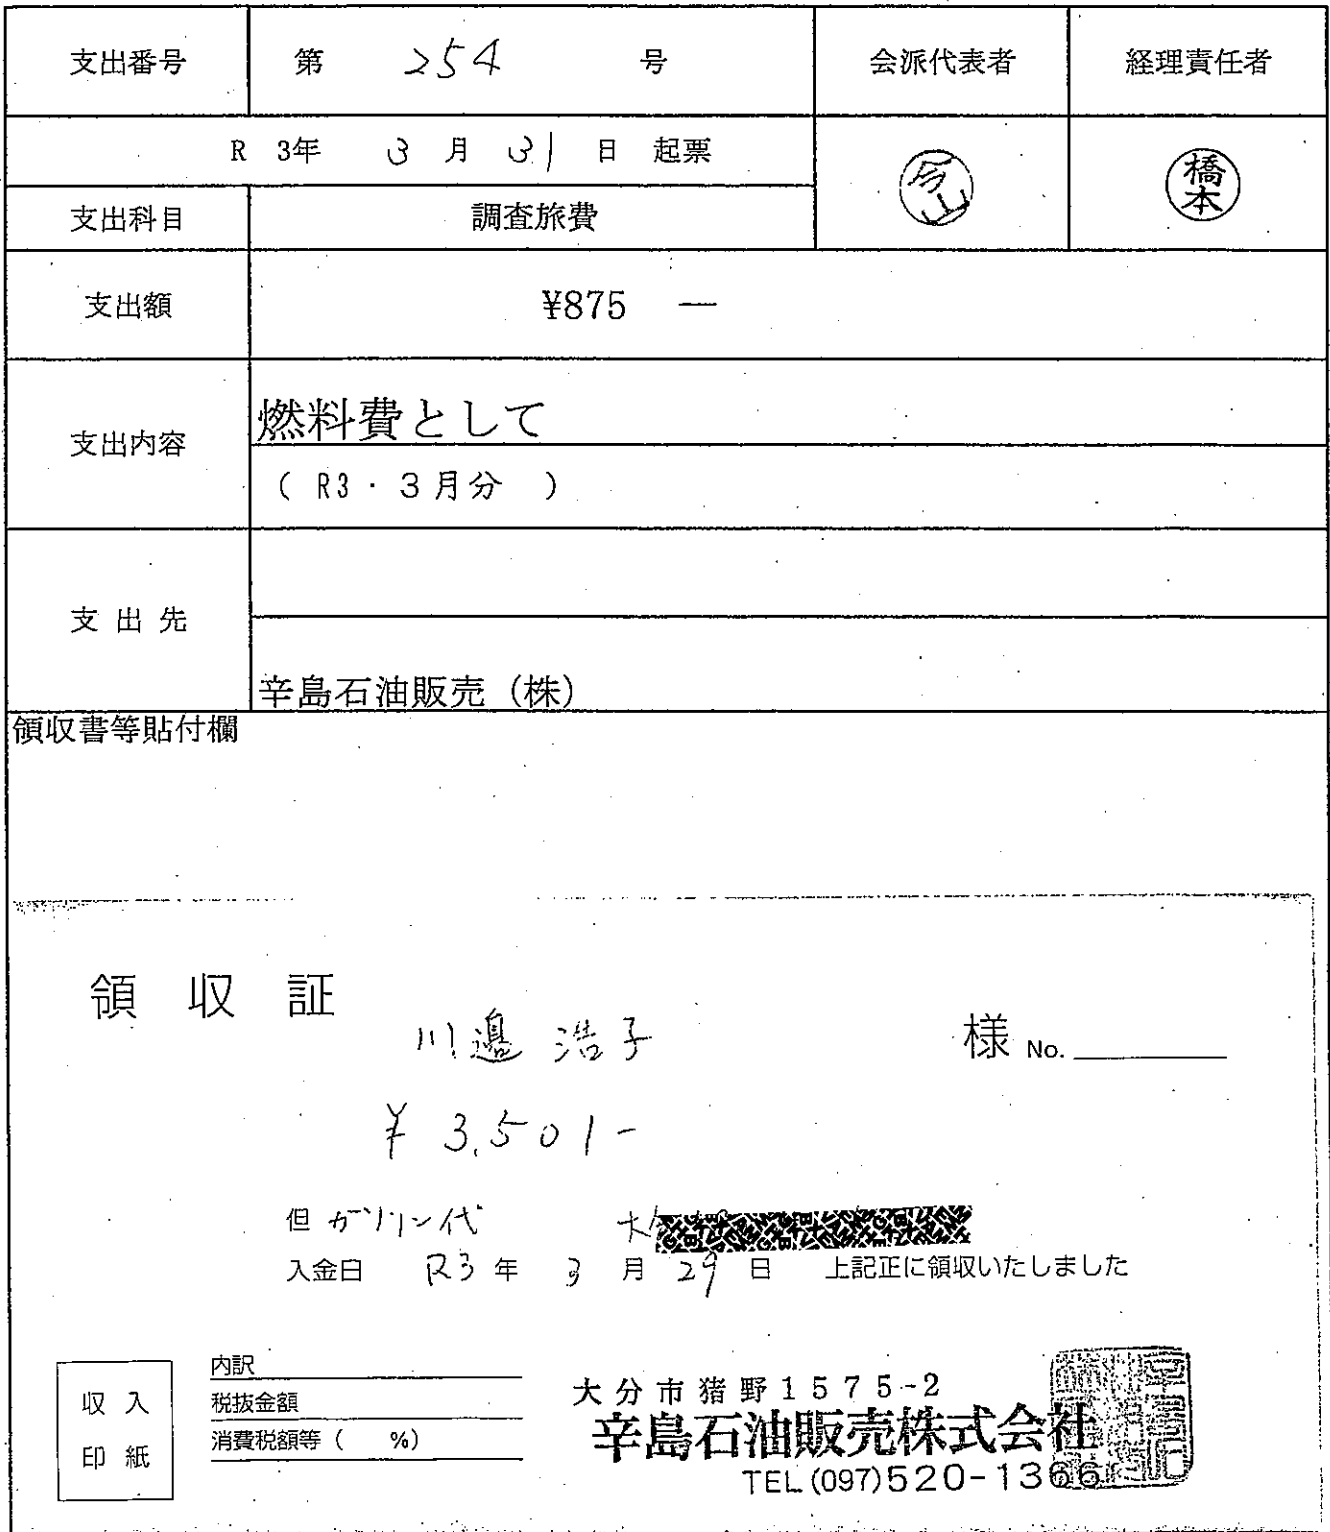 支出番号 第 254 号 会派代表者 経理責任者
R 3年 3 月 31 日 起票
今山 橋本
支出科目 調査旅費
支出額 ¥875 ―
支出内容 燃料費として
( R3・3月分 )
支出先
辛島石油販売(株)
領収書等貼付欄
領収証
川邉 浩子 様 No.
¥3,501-
但 ガソリン代 大分
入金日 R3年 3月 29日 上記正に領収いたしました
収入印紙
内訳
税抜金額
消費税額等( %)
大分市猪野1575-2
辛島石油販売株式会社
TEL(097)520-1366